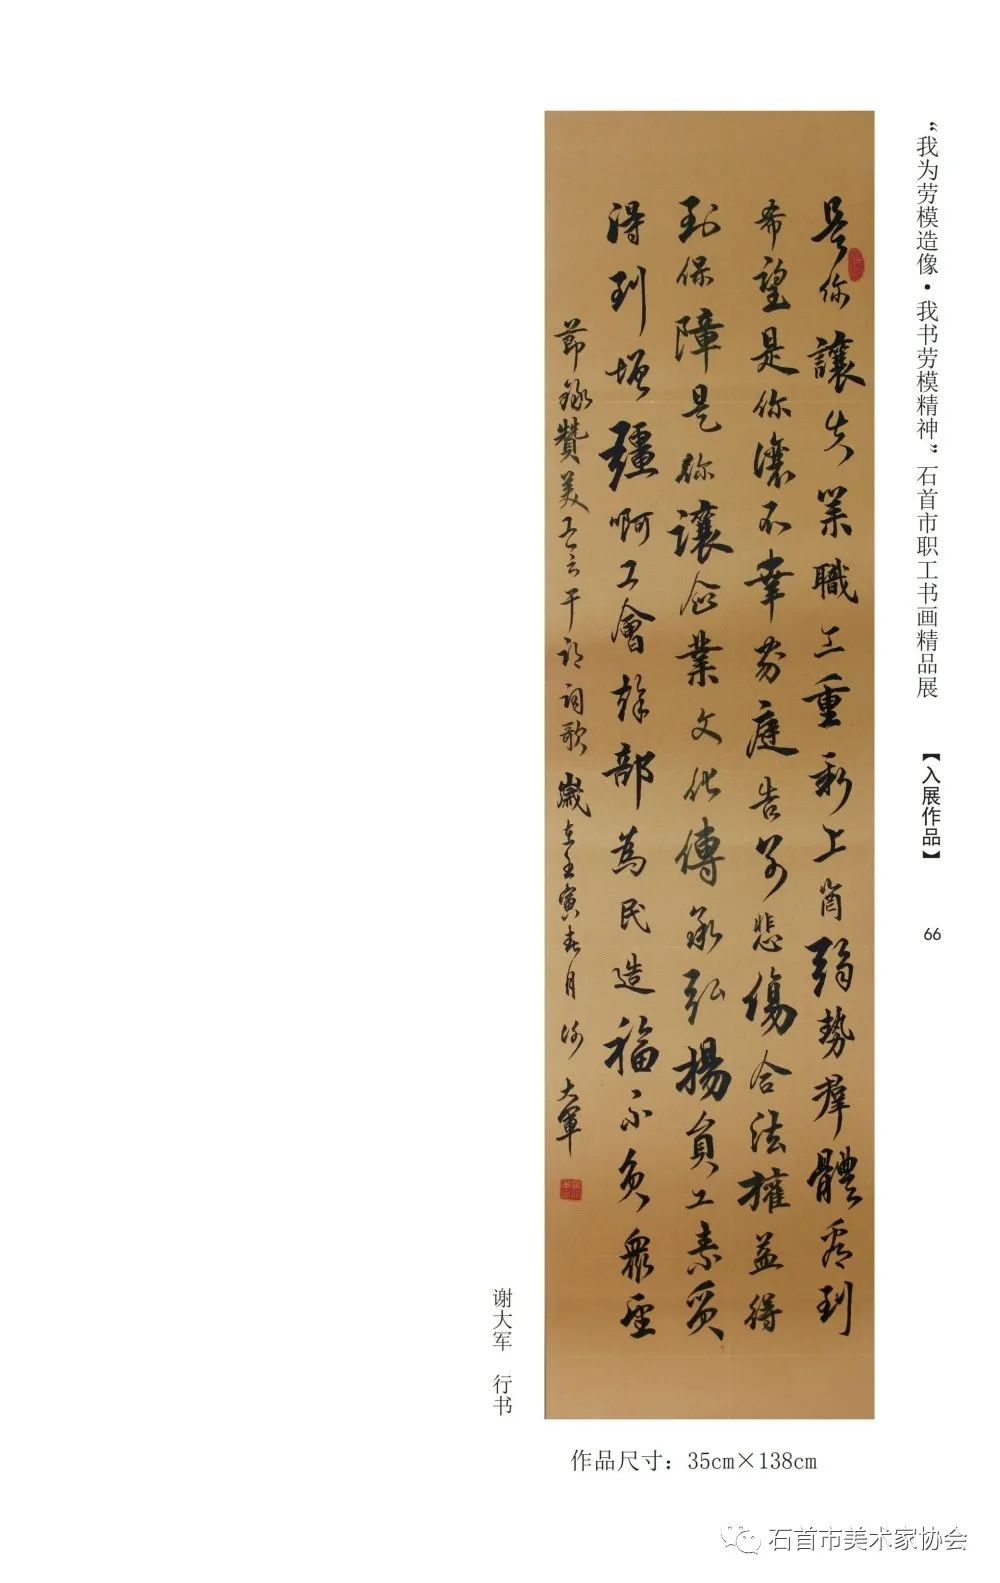 “我为劳模造像·我书劳模精神”石首市职工书画精品展
【入展作品】
66
是你讓失業職工重新上崗弱勢群體看到
希望是你讓不幸家庭告別悲傷合法權益得
到保障是你讓企業文化傳承弘揚員工素質
得到增彊啊工會幹部為民造福不負眾望
節錄贊美工会干部詞歌 歲在壬寅春月 謝大軍
谢大军 行书
作品尺寸：35cm×138cm
石首市美术家协会